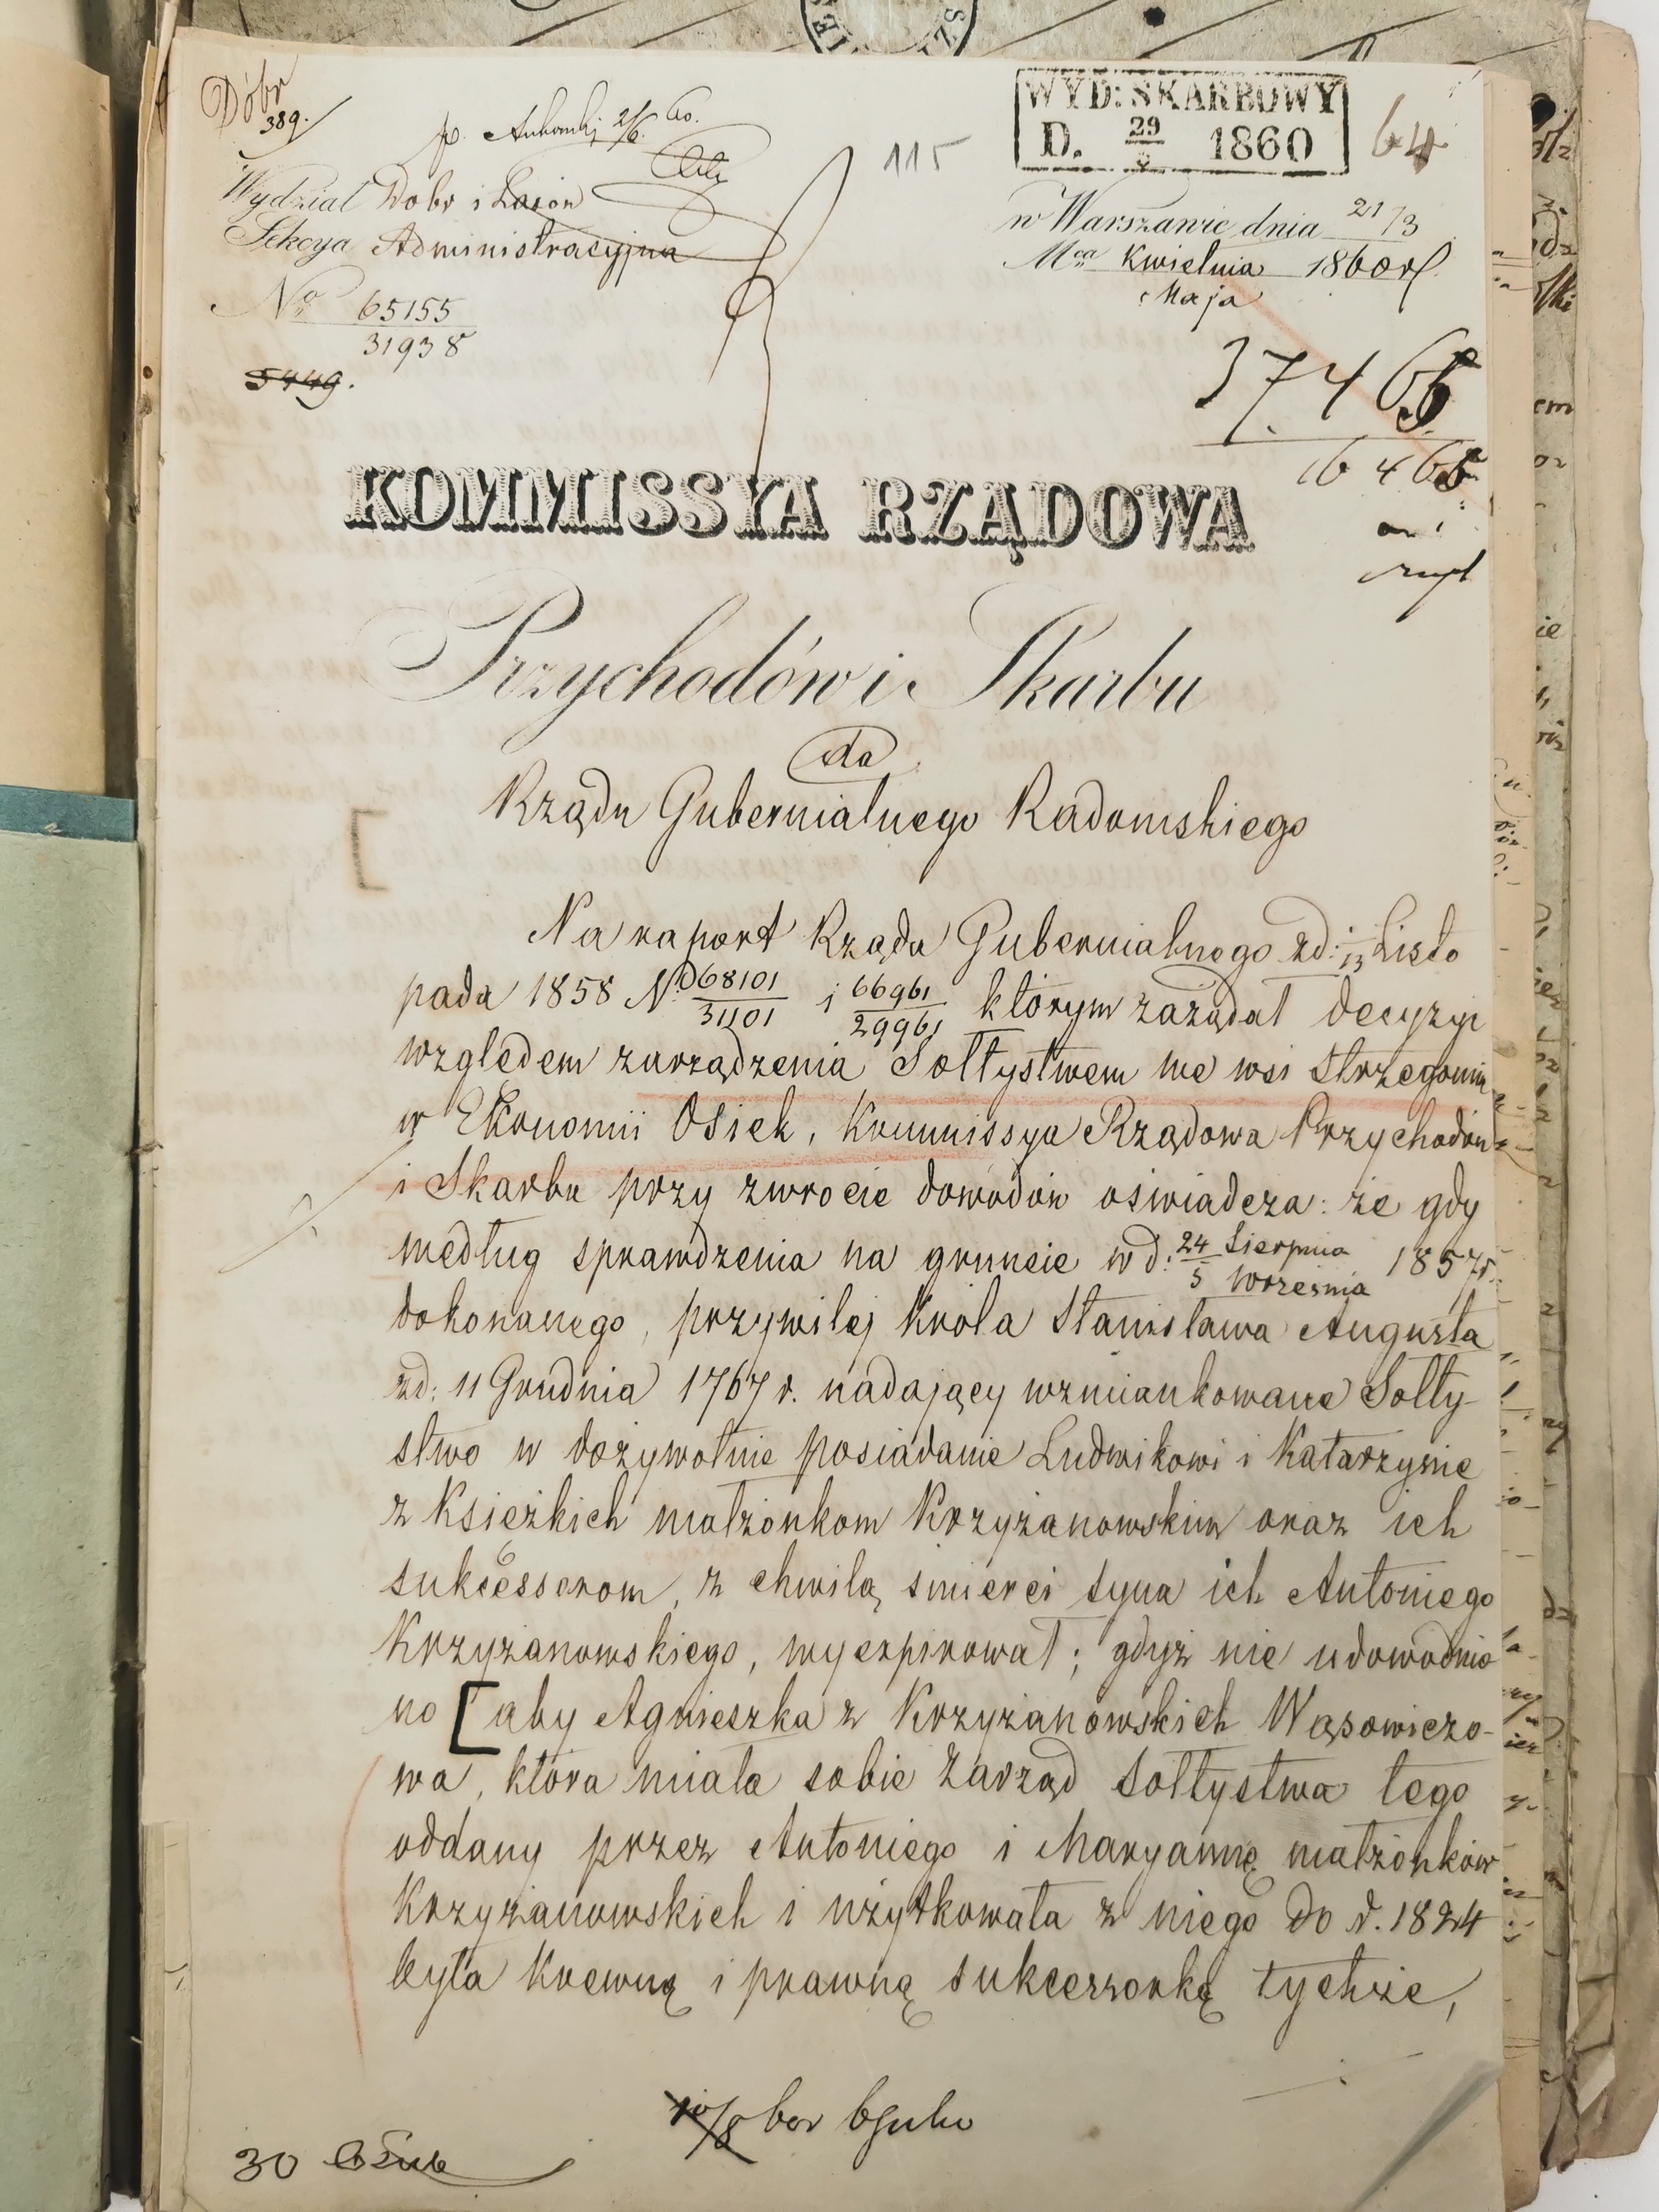 Dóbr
389.
WYD: SKARBOWY
D. 29 1860
64
115
Wydział Dobr i Lasów
Sekcya Administracyjna
No 65155
31938
5449.
w Warszawie dnia 21/3
Mca Kwietnia 1860 r.
Maja
37465
16465
KOMMISSYA RZĄDOWA
Przychodów i Skarbu
do
Rządu Gubernialnego Radomskiego
Na raport Rządu Gubernialnego z d: 1/13 Listo
pada 1858 No 68101/31101 i 66961/29961 którym zażądał decyzyi
względem zarządzenia Sołtystwem we wsi Strzegomiu
w Ekonomii Osiek, Kommissya Rządowa Przychodów
i Skarbu przy zwrocie dowodów oświadcza: że gdy
według sprawdzenia na gruncie w d: 24 Sierpnia/5 Września 1857 r.
dokonanego, przywilej Króla Stanisława Augusta
z d: 11 Grudnia 1767 r. nadający wzmiankowane Sołty-
stwo w dożywotnie posiadanie Ludwikowi i Katarzynie
z Księzkich małżonkom Krzyżanowskim oraz ich
sukcessorom, z chwilą śmierci syna ich Antoniego
Krzyżanowskiego, wyexpirował; gdyż nie udowodnio
no [aby Agnieszka z Krzyżanowskich Wąsowiczo-
wa, która miała sobie Zarząd Sołtystwa tego
oddany przez Antoniego i Maryannę małżonków
Krzyżanowskich i użytkowała z niego do r. 1824
była Krewną i prawną sukcessorką tychże,
30